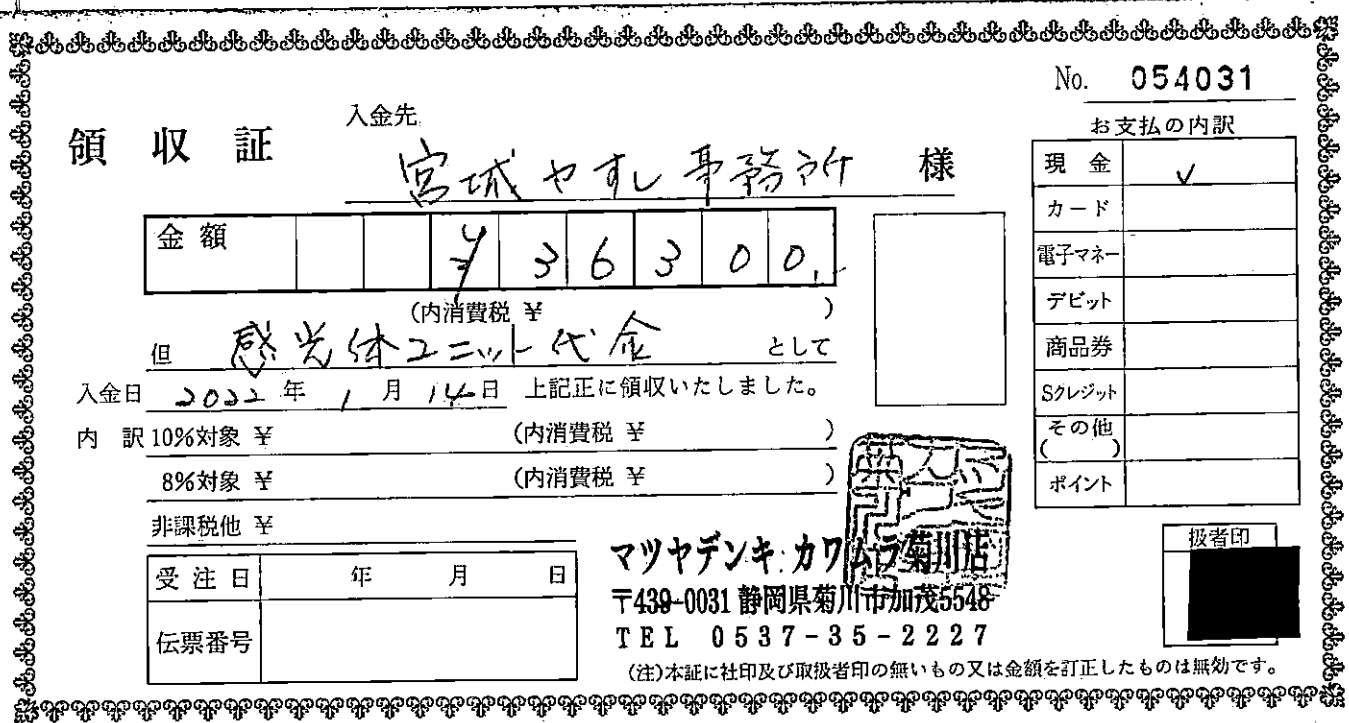 No. 054031
領収証
入金先
宮城やすし事務所 様
金額 ¥36300
(内消費税 ¥ )
但 感光体ユニット代金 として
入金日 2022年1月14日 上記正に領収いたしました。
内訳 10%対象 ¥ (内消費税 ¥ )
8%対象 ¥ (内消費税 ¥ )
非課税他 ¥
受注日 年 月 日
伝票番号
お支払の内訳
現金 ✓
カード
電子マネー
デビット
商品券
Sクレジット
その他( )
ポイント
扱者印
マツヤデンキ カワムラ菊川店
〒439-0031 静岡県菊川市加茂5548
TEL 0537-35-2227
(注)本証に社印及び取扱者印の無いもの又は金額を訂正したものは無効です。